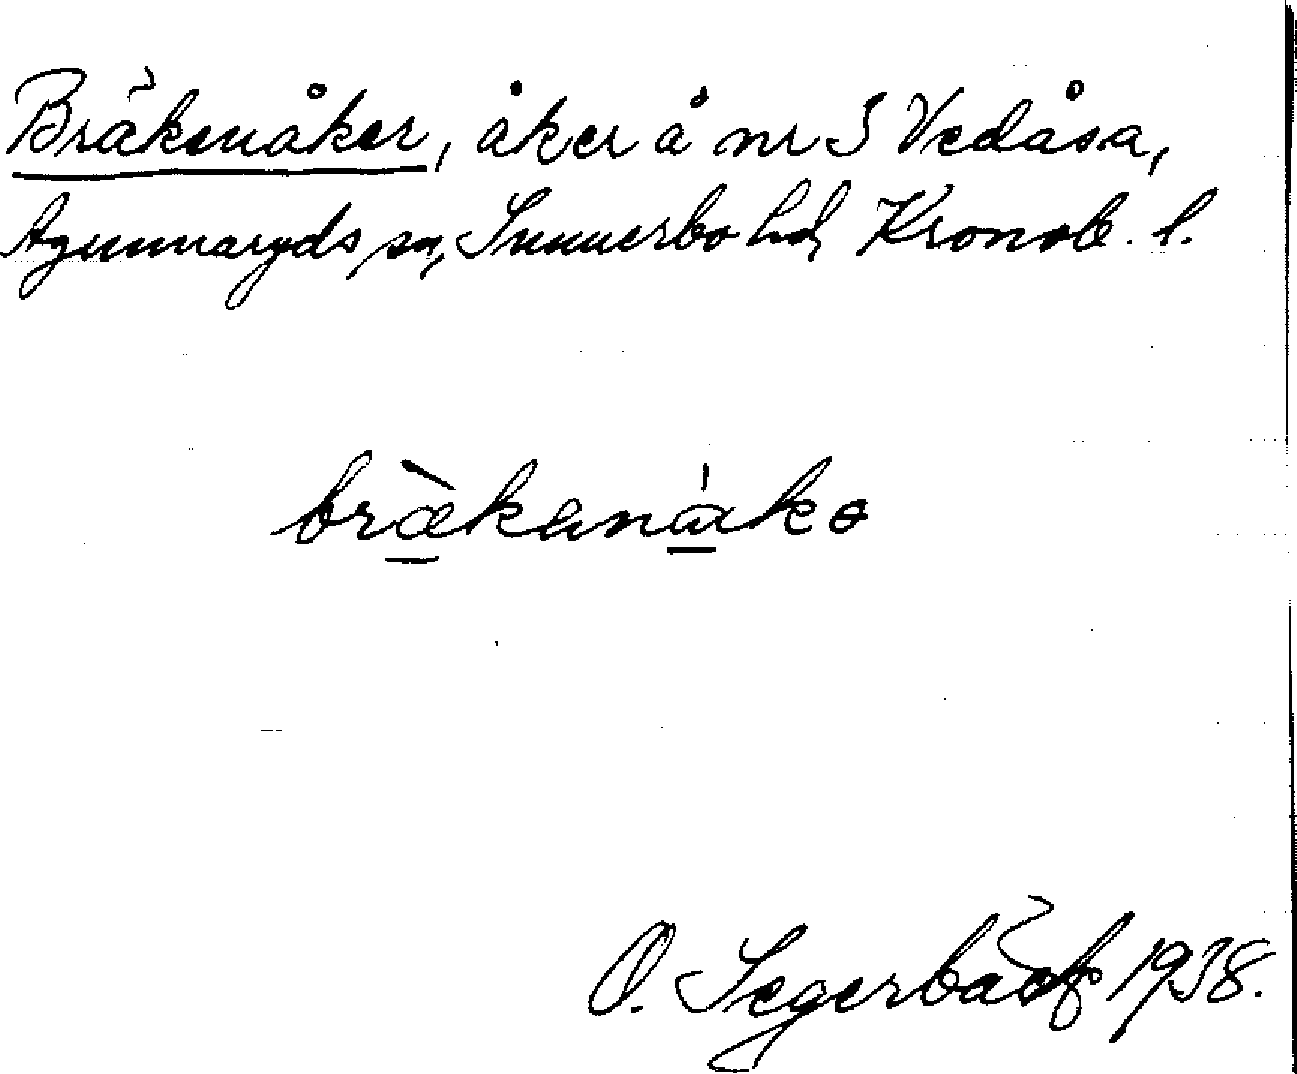 Bräkenåker, åker å nr 3 Vedåsa,
Agunnaryds sn, Sunnerbo hd, Kronob. l.
bræ̀kanákɵ
O. Segerbäck 1938.